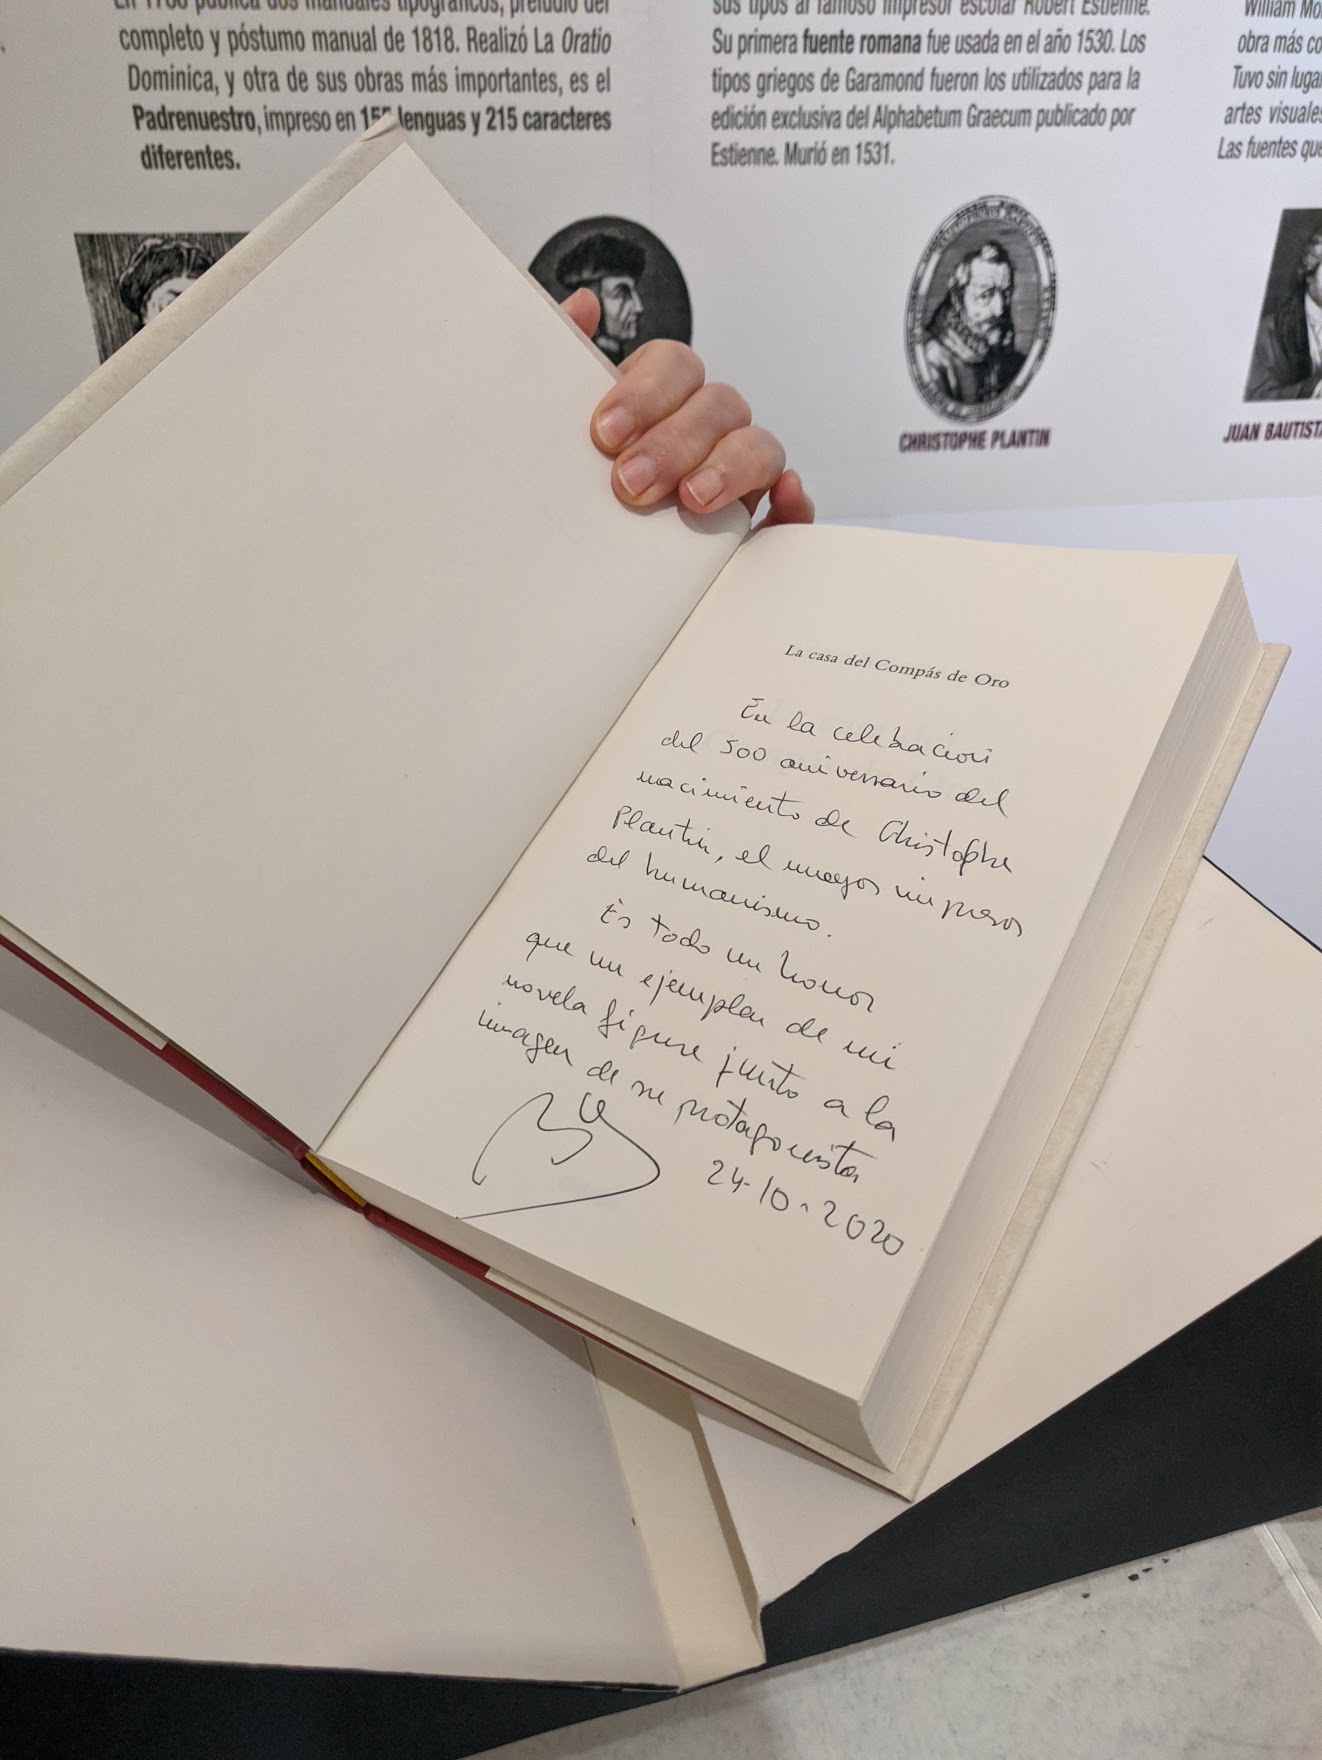 En 1788 publica dos manuales tipográficos, preludio del
completo y póstumo manual de 1818. Realizó La Oratio
Dominica, y otra de sus obras más importantes, es el
Padrenuestro, impreso en 155 lenguas y 215 caracteres
diferentes.
sus tipos al famoso impresor escolar Robert Estienne.
Su primera fuente romana fue usada en el año 1530. Los
tipos griegos de Garamond fueron los utilizados para la
edición exclusiva del Alphabetum Graecum publicado por
Estienne. Murió en 1531.
William
obra más
Tuvo sin
artes
Las fuentes
CHRISTOPHE PLANTIN
JUAN
La casa del Compás de Oro
En la celebración
del 500 aniversario del
nacimiento de Christophe
Plantin, el mayor impresor
del humanismo.
Es todo un honor
que un ejemplar de mi
novela figure junto a la
imagen de su protagonista
24-10-2020